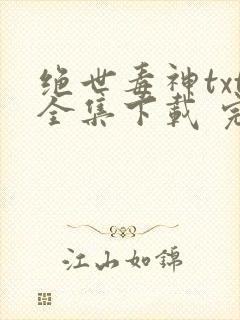 绝世毒神txt
全集下载 完
江山如锦